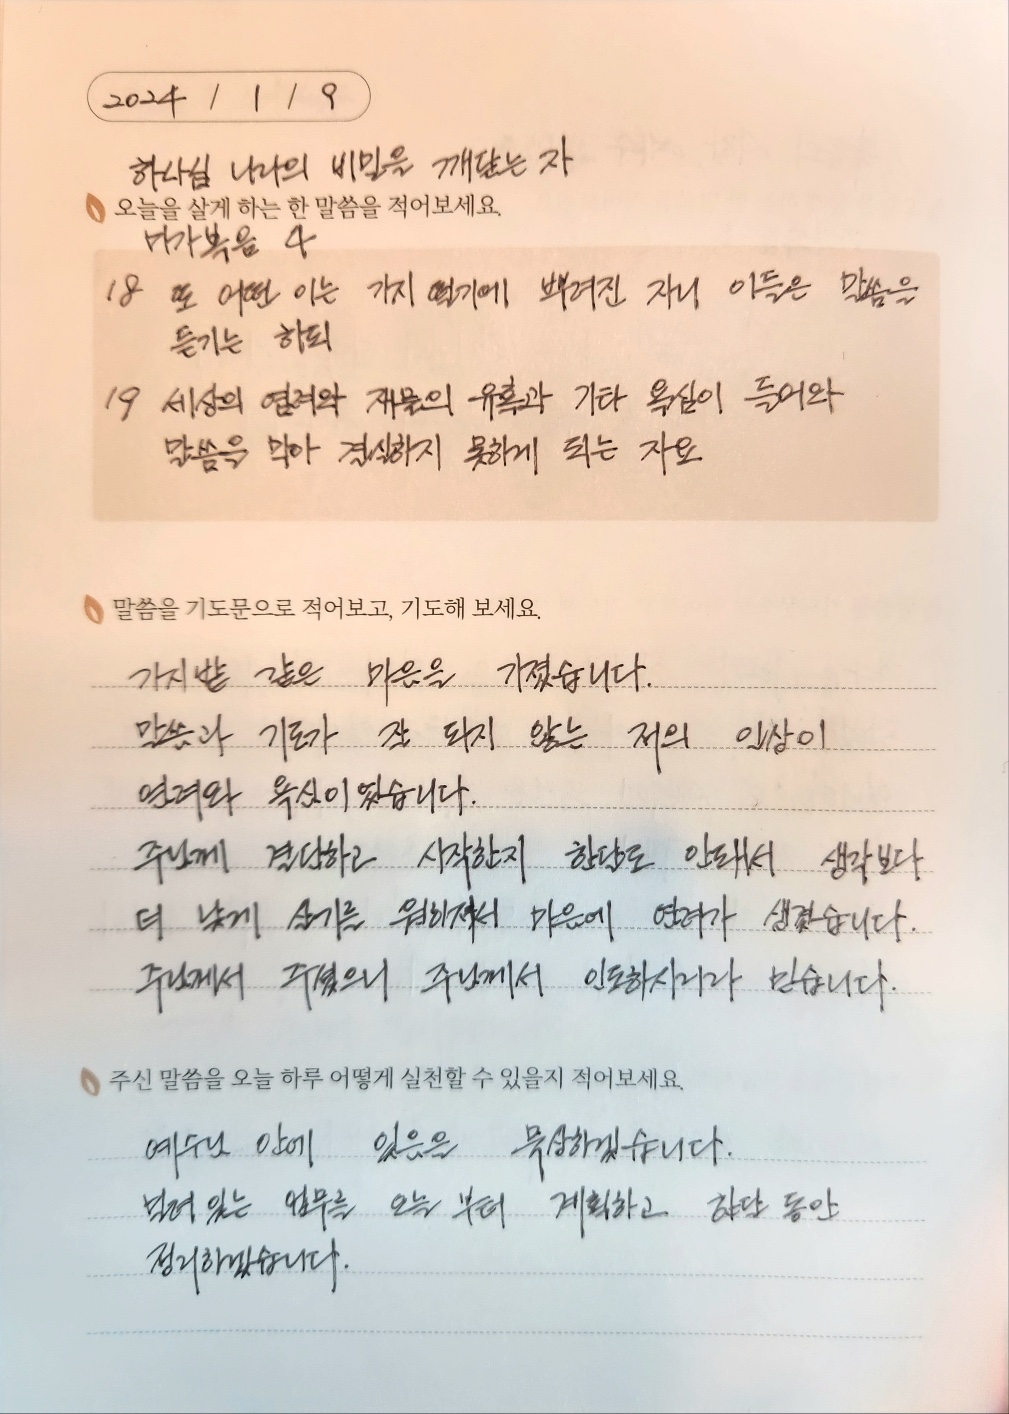 2024 / 1 / 9
하나님 나라의 비밀을 깨닫는 자
오늘을 살게 하는 한 말씀을 적어보세요.
마가복음 4
18 또 어떤 이는 가시 떨기에 뿌려진 자니 이들은 말씀을
듣기는 하되
19 세상의 염려와 재물의 유혹과 기타 욕심이 들어와
말씀을 막아 결실하지 못하게 되는 자요
말씀을 기도문으로 적어보고, 기도해 보세요.
가시밭 같은 마음을 가졌습니다.
말씀과 기도가 잘 되지 않는 저의 일상이
염려와 욕심이었습니다.
주님께 결단하고 시작한지 한달도 안돼서 생각보다
더 낮게 살기를 원하셔서 마음에 염려가 생겼습니다.
주님께서 주셨으니 주님께서 인도하시리라 믿습니다.
주신 말씀을 오늘 하루 어떻게 실천할 수 있을지 적어보세요.
예수님 안에 있음을 묵상하겠습니다.
밀려 있는 업무를 오늘 부터 계획하고 한달 동안
정리하겠습니다.